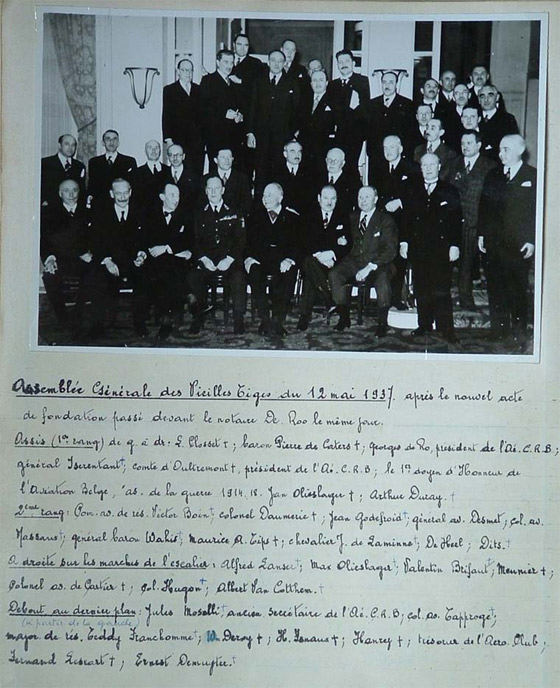 Assemblée Générale des Vieilles Tiges du 12 mai 1937, après le nouvel acte
de fondation passé devant le notaire De Roo le même jour.
Assis (1er rang) de g. à dr. L. Closset † ; baron Pierre de Caters † ; Georges de Ro, président de l'Aé. C.R.B ;
général Iserentant † ; comte d'Oultremont †, président de l'Aé. C.R.B ; le 1er doyen d'Honneur de
l'Aviation Belge, as. de la guerre 1914.18. Jan Olieslager † ; Arthur Duray. †
2ème rang : Com. av. de rés. Victor Boin † ; colonel Daumerie † ; Jean Godefroid † ; général av. Desmet ; col. av.
Massaux † ; général baron Wahis † ; Maurice A. Tips † ; chevalier J. de Laminne † ; De Heel ; Dits. †
A droite sur les marches de l'escalier : Alfred Lanser † ; Max Olieslager † ; Valentin Brifaut † ; Meunier † ;
Colonel av. de Cartier † ; col. Hugon † ; Albert Van Cotthem. †
Debout au dernier plan : Jules Moselli † ancien secrétaire de l'Aé. C.R.B ; col. av. Tapproge † ;
(à partir de la gauche)
major de rés. Teddy Franchomme † ; W. Deroy † ; H. Isnaux † ; Hanrez † ; trésorier de l'Aero. Club ;
Fernand Lescart † ; Ernest Demuyter. †